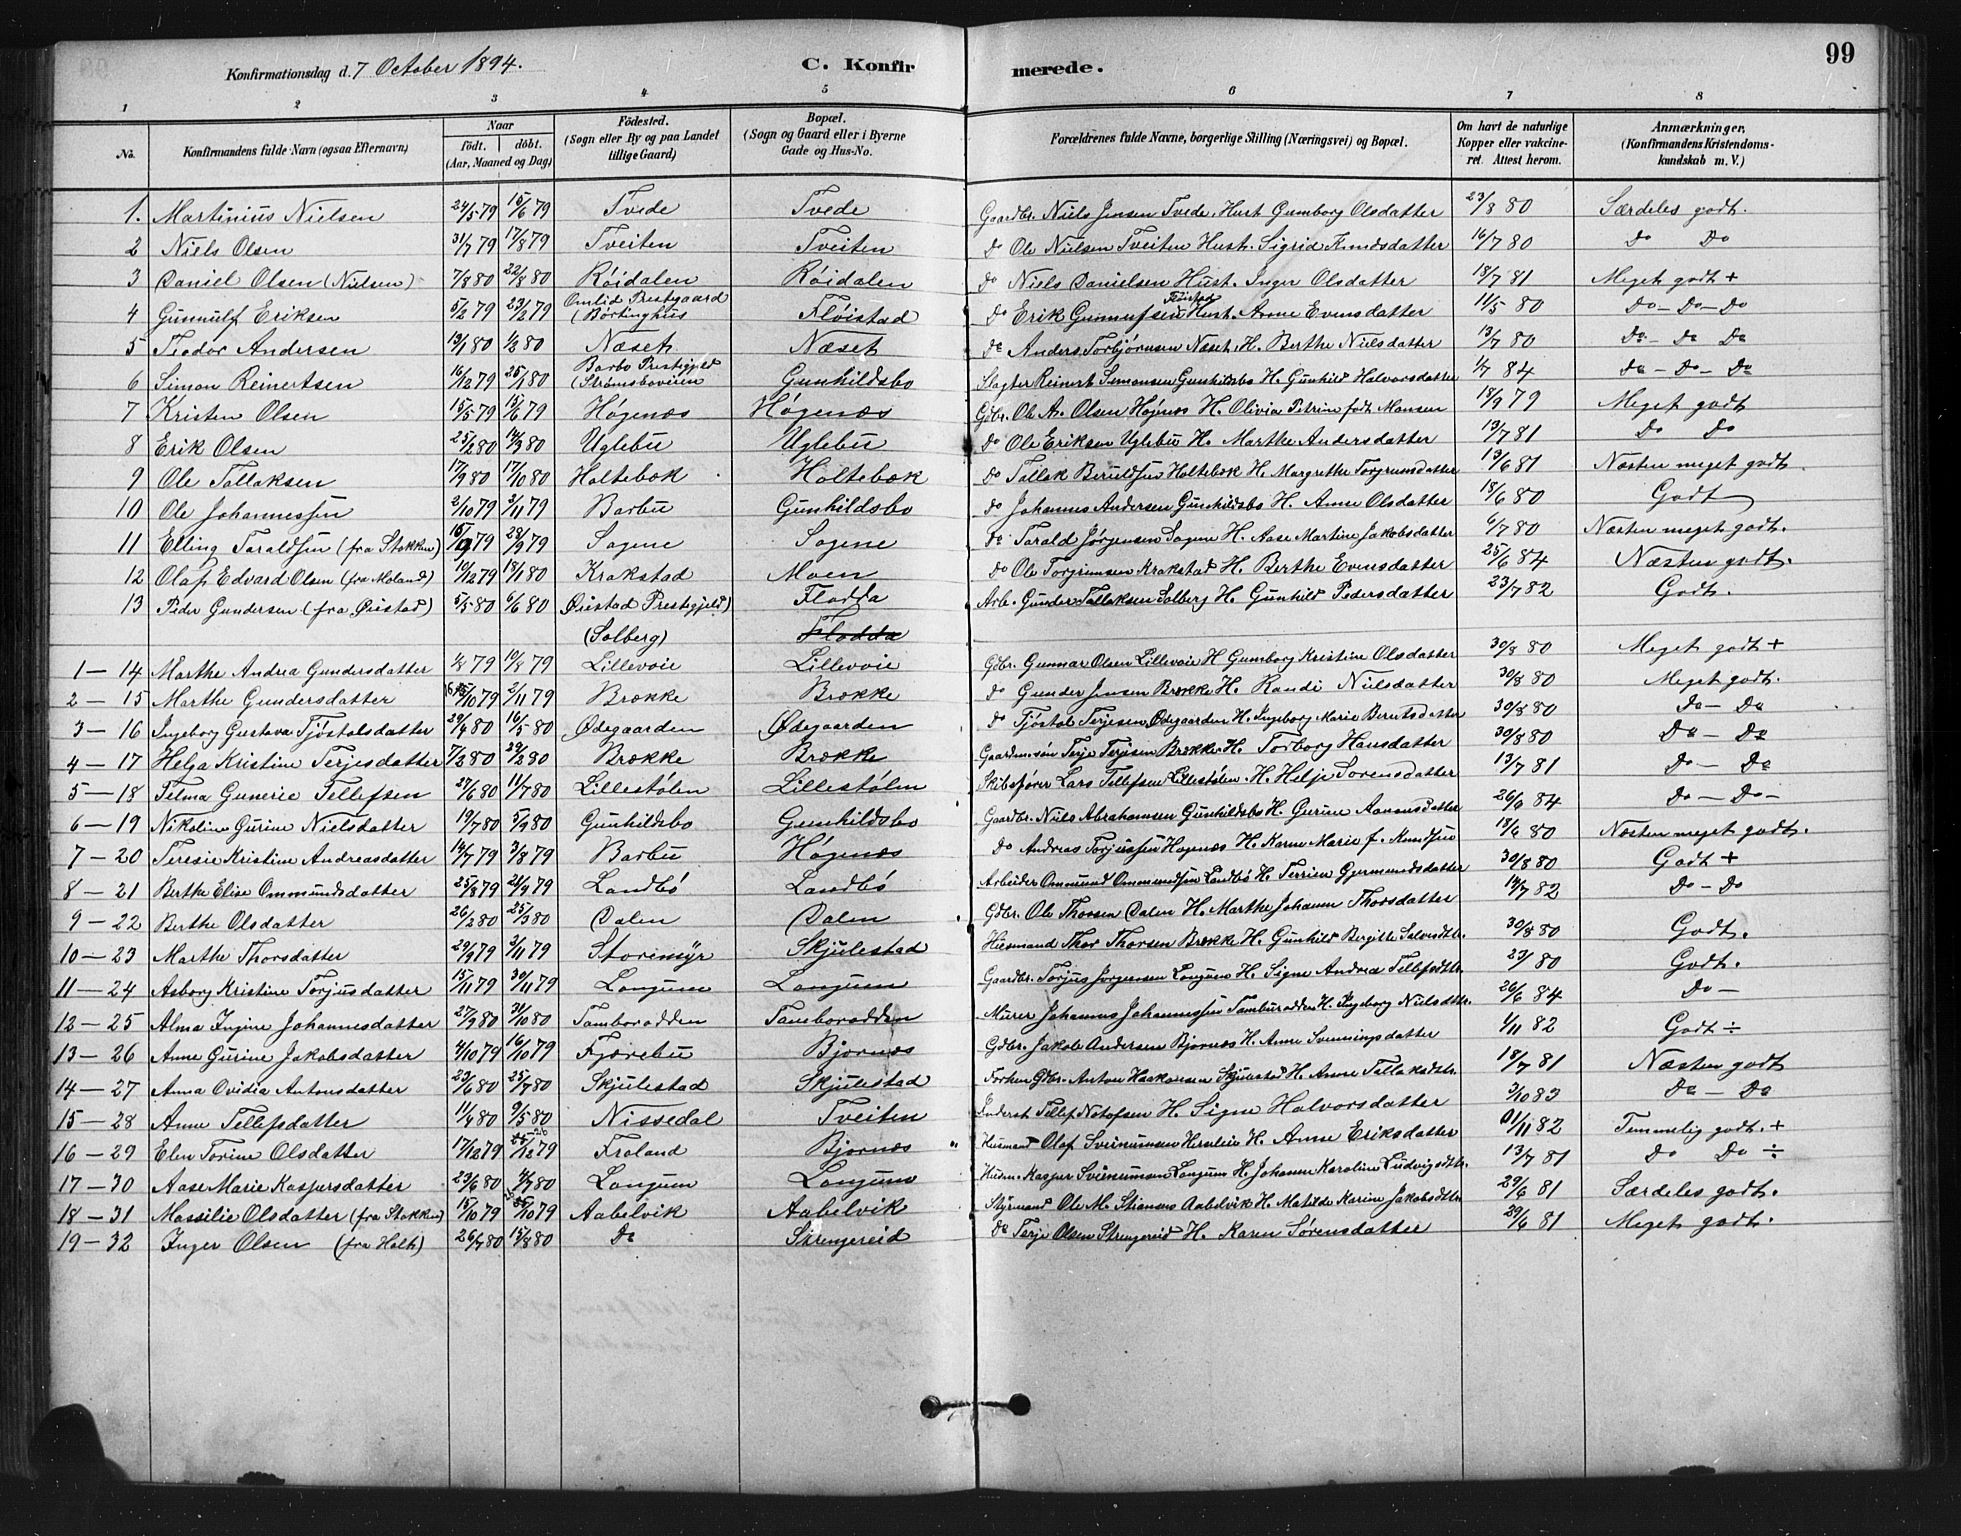 Konfirmationsdag d. 7 October 1894. C. Konfirmerede. 99
1 2 3 4 5 6 7 8
No. Konfirmandens fulde Navn (ogsaa Efternavn) Naar født. døbt. (Aar, Maaned og Dag) Fødested. (Sogn eller By og paa Landet tillige Gaard) Bopæl. (Sogn og Gaard eller i Byerne Gade og Hus-No. Forældrenes fulde Navne, borgerlige Stilling (Næringsvei) og Bopæl. Om havt de naturlige Kopper eller vakcineret. Attest herom. Anmærkninger. (Konfirmandens Kristendomskundskab m. V.)
1. Martinius Nielsen 24/5 79 15/6 79 Tvede Tvede Gaardbr. Niels Jensen Tvede. Hust Gumborg Olsdatter 23/8 80 Særdeles godt.
2 Niels Olsen 31/7 79 17/8 79 Tveiten Tveiten Do Ole Nielsen Tveiten Hust. Sigrid Knudsdatter 16/7 80 Do Do
3 Daniel Olsen (Nielsen) 7/8 80 22/8 80 Røidalen Røidalen Do Niels Danielsen Hust. Inger Olsdatter 18/7 81 Meget godt +
4 Gunnulf Eriksen 5/2 79 23/2 79 Omlid Prestgaard (Børtinghus Fløistad Do Erik Gunnufsen Fløistad Hust. Anne Evensdatter 11/5 80 Do - Do - Do
5 Teodor Andersen 13/1 80 1/2 80 Næset Næset Do Anders Torbjørnsen Næset. H. Berthe Nielsdatter 13/7 80 Do - Do Do
6 Simon Reinertsen 16/12 79 25/1 80 Barbo Prestigjeld (Strømsboveien Gunhildsbo Slagter Reinert Simonsen Gunhildsbo H. Gunhild Halvorsdatter 1/7 84 Do - Do - Do
7 Kristen Olsen 13/5 79 15/6 79 Høgenæs Høgenæs Gdbr. Ole A. Olsen Høgnæs H. Olivia Petrine født Monsen 18/9 79 Meget godt
8 Erik Olsen 25/2 80 14/3 80 Uglebu Uglebu Do Ole Eriksen Uglebu H. Marthe Andersdatter 13/7 81 Do Do
9 Ole Tallaksen 17/9 80 17/10 80 Holtebæk Holtebæk Do Tallak Beruldsen Holtebæk H. Margrethe Torgrimsdatter 13/6 81 Næsten meget godt.
10 Ole Johannessen 2/10 79 2/11 79 Barbu Gunhildsbo Do Johannes Andersen Gunhildsbo H. Anne Olsdatter 18/6 80 Godt
11 Elling Taraldsen (fra Stokken) 79 28/9 79 Sagene Sagene Do Tarald Jørgensen Sagene H. Aase Martine Jakobsdatter 6/7 80 Næsten meget godt.
12 Olaf Edvard Olsen (fra Moland) 10/12 79 18/1 80 Krakstad Moen Do Ole Torgrimsen Krakstad H. Berthe Evensdatter 25/6 84 Næsten godt.
13 Peder Gundersen (fra Øiestad) 5/5 80 6/6 80 Øiestad Prestigjeld) Flodda Arb. Gunder Tallaksen Solberg H. Gunhild Pedersdatter 23/7 82 Godt.
(Solberg) Flodda
1 - 14 Marthe Andrea Gundersdatter 1/8 79 10/8 79 Lillevoie Lillevoie Gdbr. Gunnar Olsen Lillevoie H Gumborg Kristine Olsdatter 30/8 80 Meget godt +
2 - 15 Marthe Gundersdatter /10 79 2/11 79 Brække Brække Do Gunder Jensen Brække H. Randi Nielsdatter 30/8 80 Meget godt.
3 - 16 Ingeborg Gustava Tjøstolsdatter 29/4 80 16/5 80 Ødegaarden Ødegaarden Do Tjøstol Terjesen Ødegaarden H. Ingeborg Marie Berntsdatter 30/8 80 Do - Do
4 - 17 Helga Kristine Terjesdatter 7/2 80 29/2 80 Brække Brække Gaardmanssøn Terje Terjesen Brække H. Torborg Hansdatter 30/8 80 Do - Do
5 - 18 Telma Gunerie Tellefsen 27/6 80 11/7 80 Lillestølen Lillestølen Skibsfører Lars Tellefsen Lillestølen. H. Helje Sorensdatter 13/7 81 Do - Do
6 - 19 Nikoline Gurine Nielsdatter 19/7 80 5/9 80 Gunhildsbo Gunhildsbo Gaardbr. Niels Abrahamsen Gunhildsbo H. Gurine Aanonsdatter 26/6 84 Do - Do -
7 - 20 Teresie Kristine Andreasdatter 14/7 79 3/8 79 Barbu Høgenæs Do Andreas Torjussen Høgenæs H. Karen Marie f. Knudsen 18/6 80 Næsten meget godt.
8 - 21 Berthe Elise Ommundsdatter 25/8 79 21/9 79 Landbø Landbø Arbeider Ommund Ommundsen Landbø H. Terrine Gjermundsdatter 30/8 80 Godt +
9 - 22 Berthe Olsdatter 26/2 80 25/3 80 Dalen Dalen Gdbr. Ole Thorsen Dalen H. Marthe Johanne Thorsdatter 14/7 82 Do - Do
10 - 23 Marthe Thorsdatter 29/9 79 2/11 79 Storemyr Skjulestad Husmand Thor Thorsen Brække H. Gunhild Bergitte Salvesdtr. 30/8 80 Godt.
11 - 24 Asborg Kristine Torjusdatter 15/11 79 30/11 79 Longum Longum Gaardbr. Torjus Jorgensen Longum H. Signe Andrea Tellefsdtr. 23/ 80 Godt.
12 - 25 Alma Ingine Johannesdatter 27/9 80 31/10 80 Tamborodden Tamborodden Murer Johannes Johannessen Tamburodden H. Ingeborg Nielsdtr. 26/6 84 Do -
13 - 26 Anne Gurine Jakobsdatter 4/10 79 16/10 79 Fjærebu Bjornæs Gdbr. Jakob Andersen Bjornæs H. Anne Svenningsdatter 1/11 82 Godt ÷
14 - 27 Anna Ovidia Antonsdatter 23/6 80 25/7 80 Skjulestad Skjulestad Forhen Gdbr. Anton Haakonsen Skjulestad H. Anne Tallaksdtr. 18/7 81 Næsten godt
15 - 28 Anne Tellefsdatter 11/4 80 9/5 80 Nissedal Tveiten Inderst Tellef Notofsen H. Signe Halvorsdatter 3/10 83 Do - Do
16 - 29 Elen Torine Olsdatter 17/12 79 /12 79 Froland Bjornæs Husmand Olaf Sveinumsen H. Anne Eriksdatter 01/11 82 Temmelig godt. +
17 - 30 Aase Marie Kaspersdatter 23/6 80 4/7 80 Longum Longum Husm. Kasper Sveinumsen Longum H. Johanne Karoline Ludvigsdtr. 13/7 81 Do Do ÷
18 - 31 Massilie Olsdatter (fra Stokken) 15/10 79 /10 79 Aabelvik Aabelvik Styrmand Ole M. Stiansen Aabelvik H. Matilde Karine Jakobsdtr. 29/6 81 Særdeles godt.
19 - 32 Inger Olsen (fra Holt) 26/7 80 15/8 80 Do Strengereid Do Terje Olsen Strengereid H. Karen Sørensdatter 29/6 81 Meget godt.